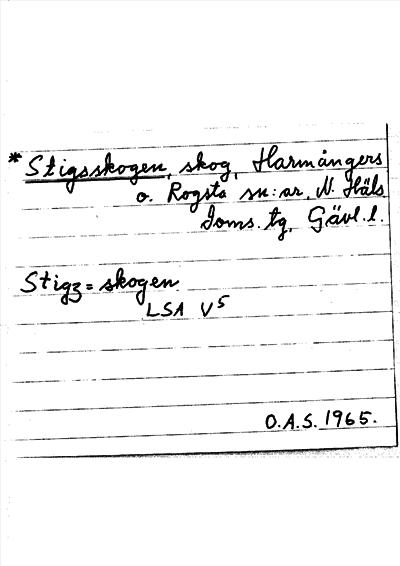 * Stigsskogen, skog, Harmångers
o. Rogsta sn:ar, N. Häls
Doms. tg, Gävl. l.
Stigz = skogen
LSA V5
O.A.S. 1965.